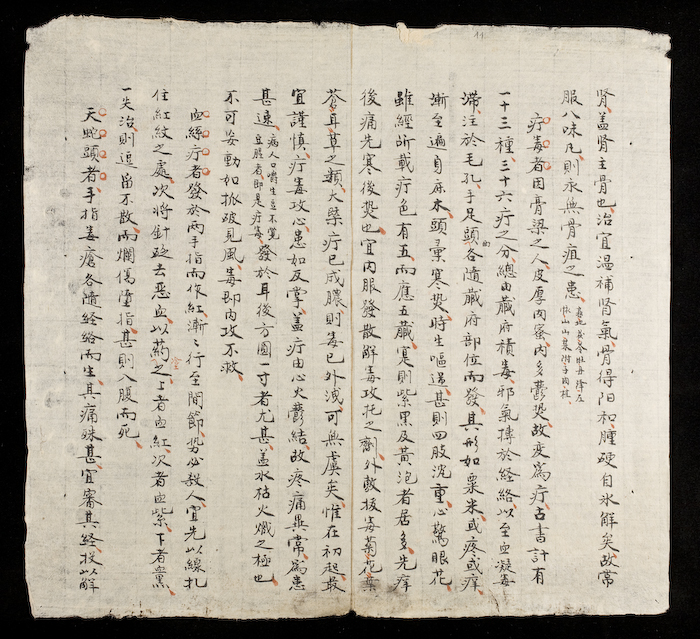 11
腎盖腎主骨也治宜温補腎氣骨得阳和腫硬自氷解矣故常
服八味凡則永無骨疽之患
疔毒者因膏粱之人皮厚肉蜜内多鬱熱故変爲疔古書計有
一十三種三十六疔之分總由臓府積毒邪氣摶於経絡以至血凝毒
滞注於毛孔手足頭面各隨臓府部位而發其形如粟米或疼或痒
漸至遍身麻木頭暈寒熱時生嘔逆甚則四肢沉重心驚眼花
雖經所載疔色有五而應五臓是則紫黑及黄泡者居多先痒
後痛先寒後熱也宜内服發散解毒攻托之劑外敷拔毒菊花葉
蒼耳草之類大槩疔已成膿則毒已外洩可無虞矣惟在初起最
宜謹慎疔毒攻心患如反掌盖疔由心火鬱結故疼痛異常爲患
甚速病人口嚼生豆不覚豆腥者即是疔毒發於耳後方圓一寸者尤甚盖水枯火熾之極也
不可妄動如抓破見風毒即内攻不救
血絲疔者發於两手指而作紅漸々行至関節势必殺人宜先以線扎
住紅紋之處次將針砭去惡血以药塗之上者血紅次者血紫下者血黒
一失治則逗畱不散而爛傷墮指甚則入腹而死
天蛇頭者手指毒瘡各隨経絡而生其痛殊甚宜審其経投以解